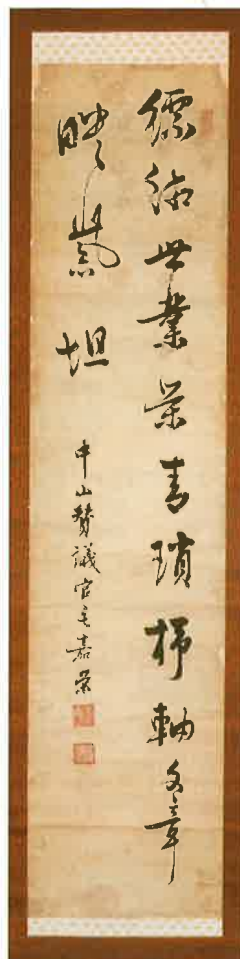 縹緗世業榮青瑣杼軸文章
映紫垣
中山贊議官毛嘉榮